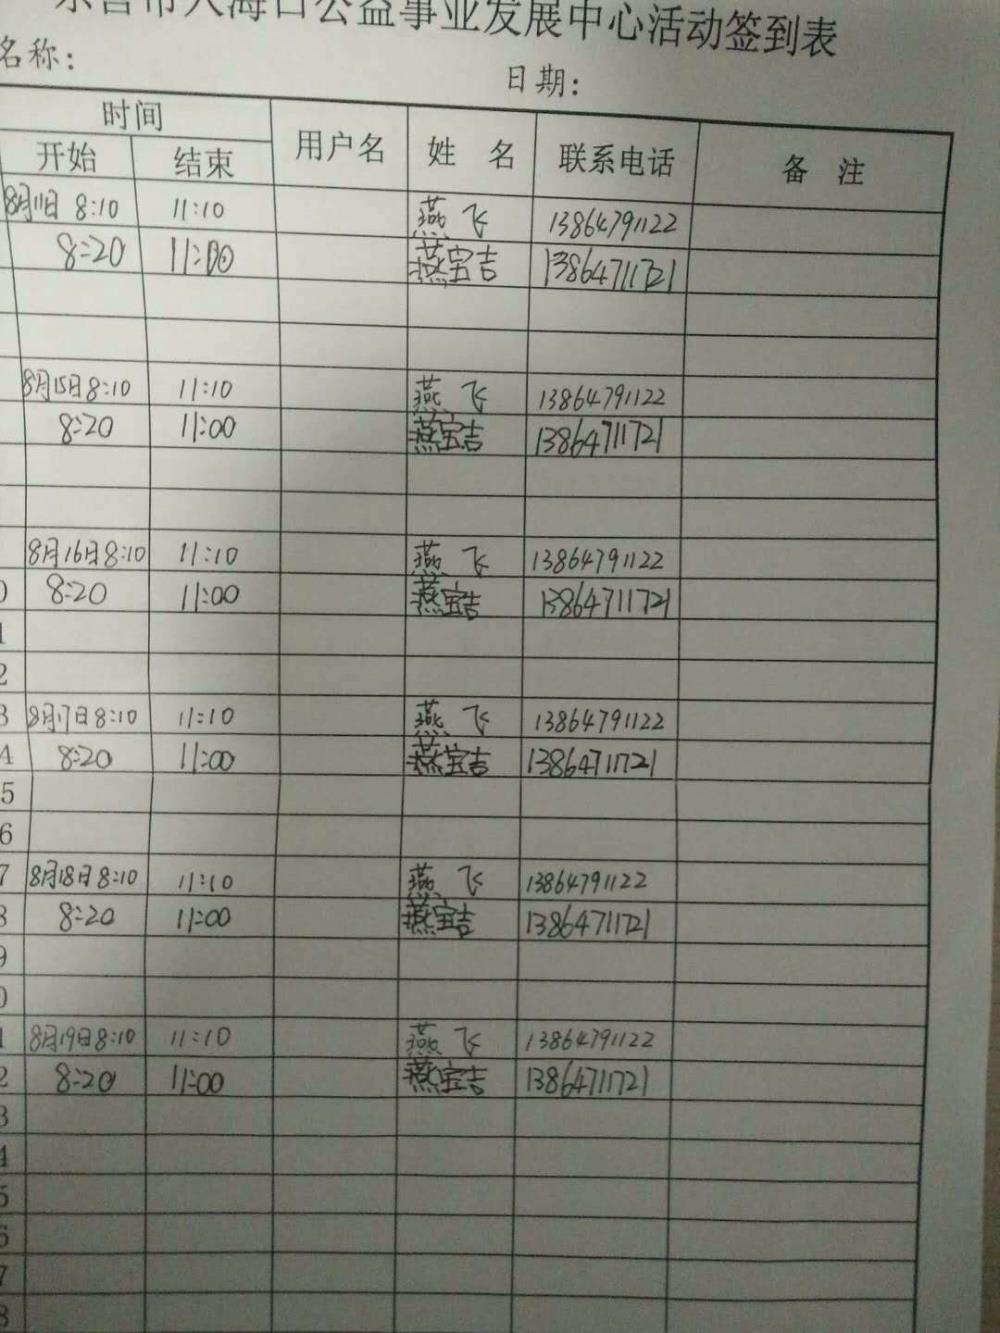 东营市入海口公益事业发展中心活动签到表
名称： 日期：
时间 用户名 姓 名 联系电话 备 注
开始 结束
8月11日 8:10 11:10 燕 飞 13864791122
8:20 11:00 燕宝吉 13864711721
8月15日8:10 11:10 燕 飞 13864791122
8:20 11:00 燕宝吉 13864711721
8月16日8:10 11:10 燕 飞 13864791122
0 8:20 11:00 燕宝吉 13864711721
1
2
3 8月17日8:10 11:10 燕 飞 13864791122
4 8:20 11:00 燕宝吉 13864711721
5
6
7 8月18日8:10 11:10 燕 飞 13864791122
8 8:20 11:00 燕宝吉 13864711721
9
0
1 8月19日8:10 11:10 燕 飞 13864791122
2 8:20 11:00 燕宝吉 13864711721
3
4
5
6
7
8